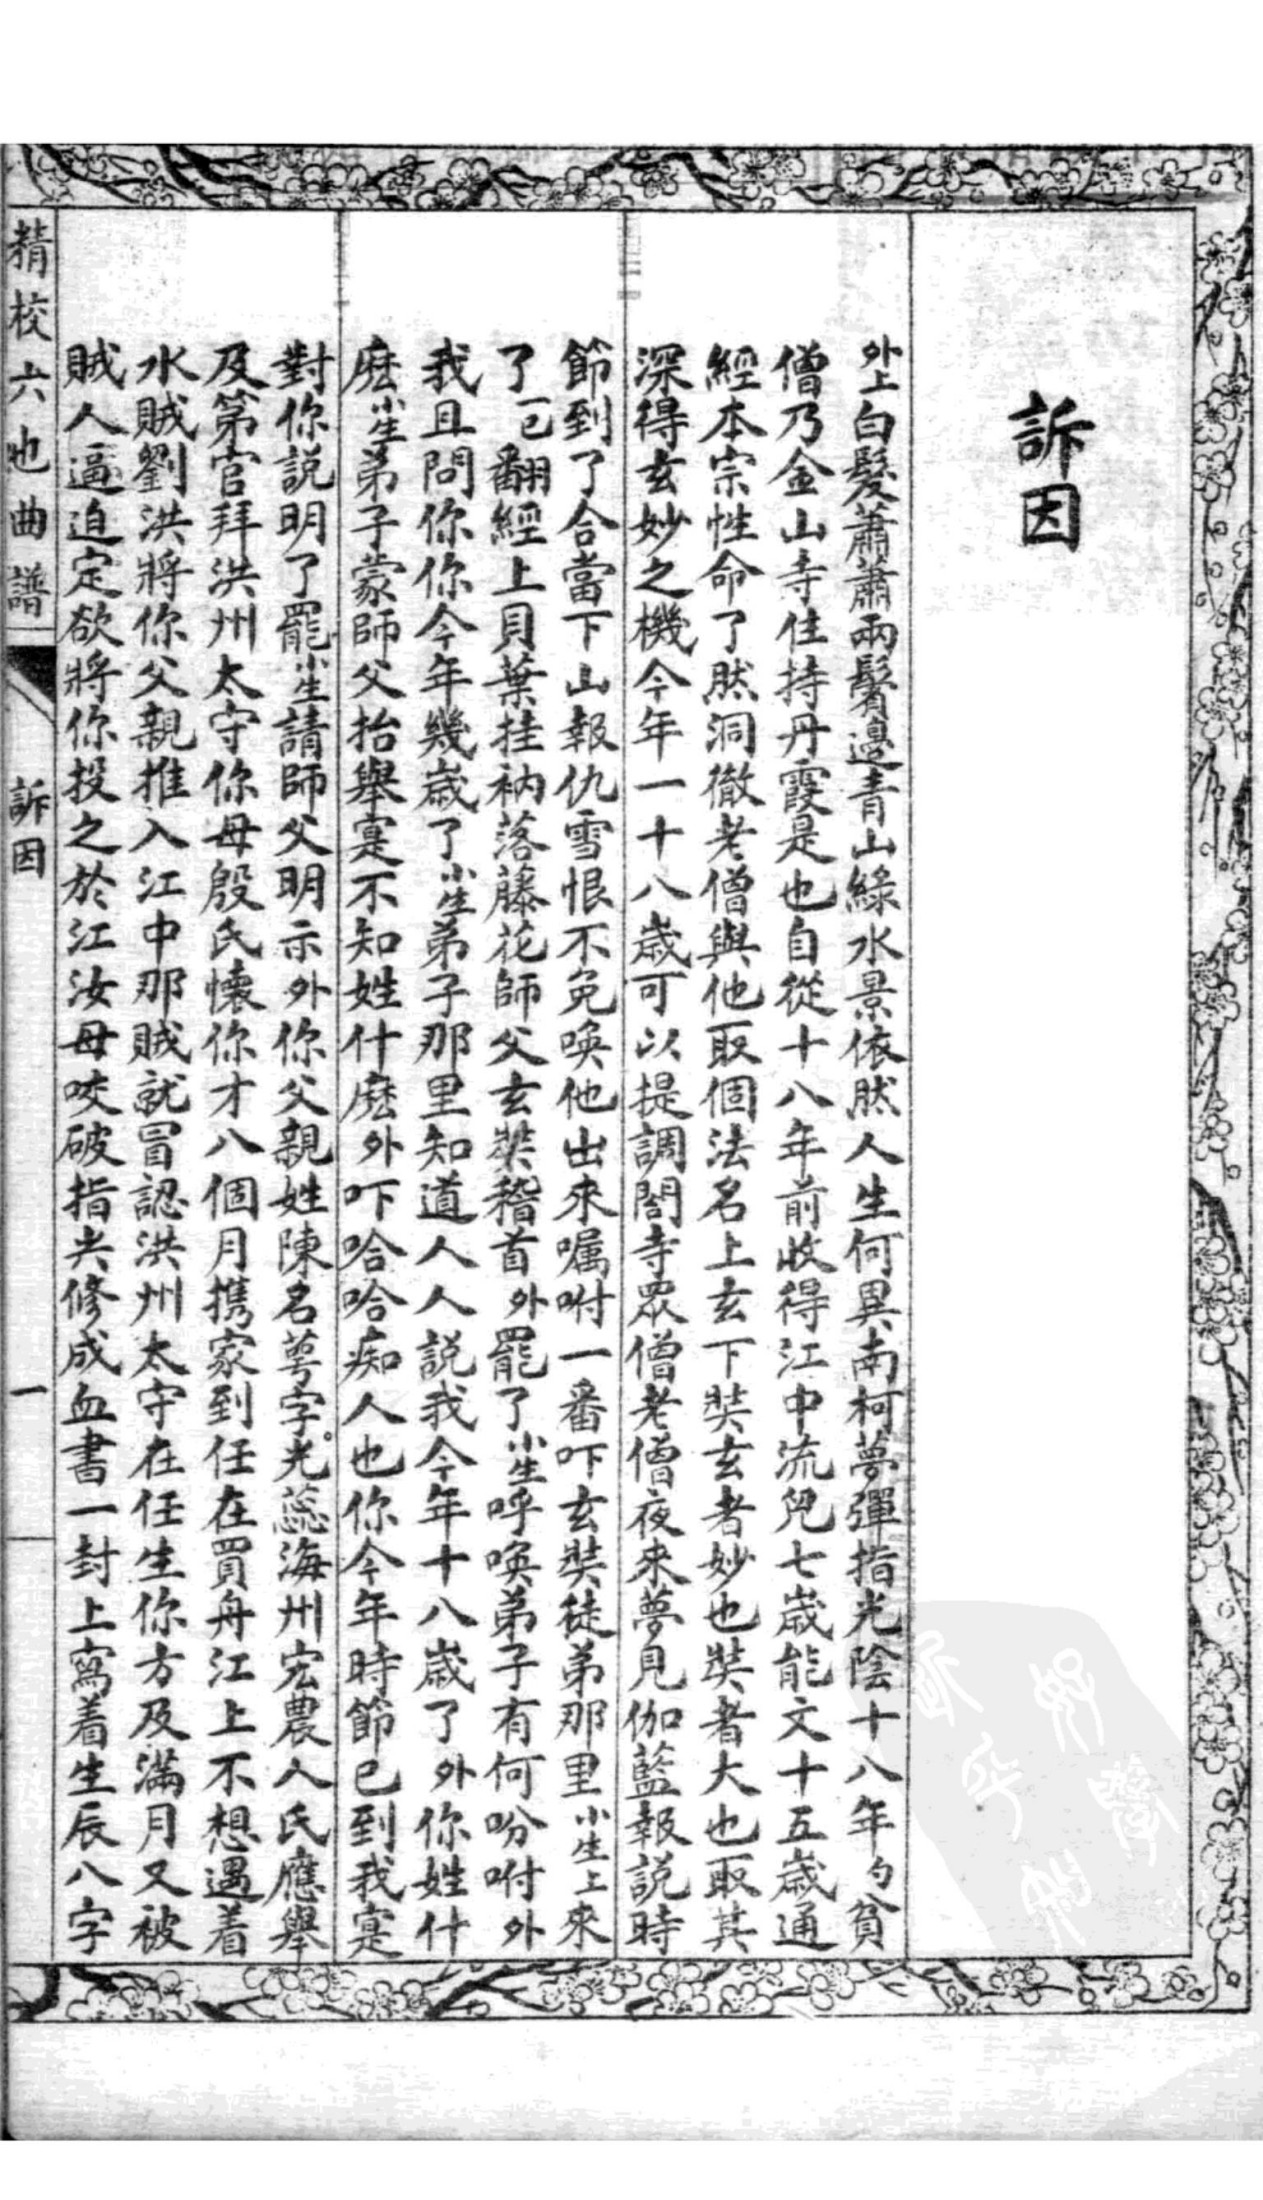 訴因
外上白髮蕭蕭兩鬢邊青山綠水景依然人生何異南柯夢彈指光陰十八年勺貧
僧乃金山寺住持丹霞是也自從十八年前收得江中流兒七歲能文十五歲通
經本宗性命了然洞徹老僧與他取個法名上玄下奘玄者妙也奘者大也取其
深得玄妙之機今年一十八歲可以提調閤寺眾僧老僧夜來夢見伽藍報說時
節到了合當下山報仇雪恨不免喚他出來囑咐一番吓玄奘徒弟那里小生上來
了翻經上貝葉挂衲落藤花師父玄奘稽首外罷了小生呼喚弟子有何吩咐外
我且問你你今年幾歲了小生弟子那里知道人人說我今年十八歲了外你姓什
麽小生弟子蒙師父抬舉寔不知姓什麽外吓哈哈痴人也你今年時節已到我寔
對你說明了罷小生請師父明示外你父親姓陳名萼字光蕊海州宏農人氏應舉
及第官拜洪州太守你母殷氏懷你才八個月携家到任在買舟江上不想遇着
水賊劉洪將你父親推入江中那賊就冒認洪州太守在任生你方及滿月又被
賊人逼迫定欲將你投之於江汝母咬破指尖修成血書一封上寫着生辰八字
精校六也曲譜 訴因 一